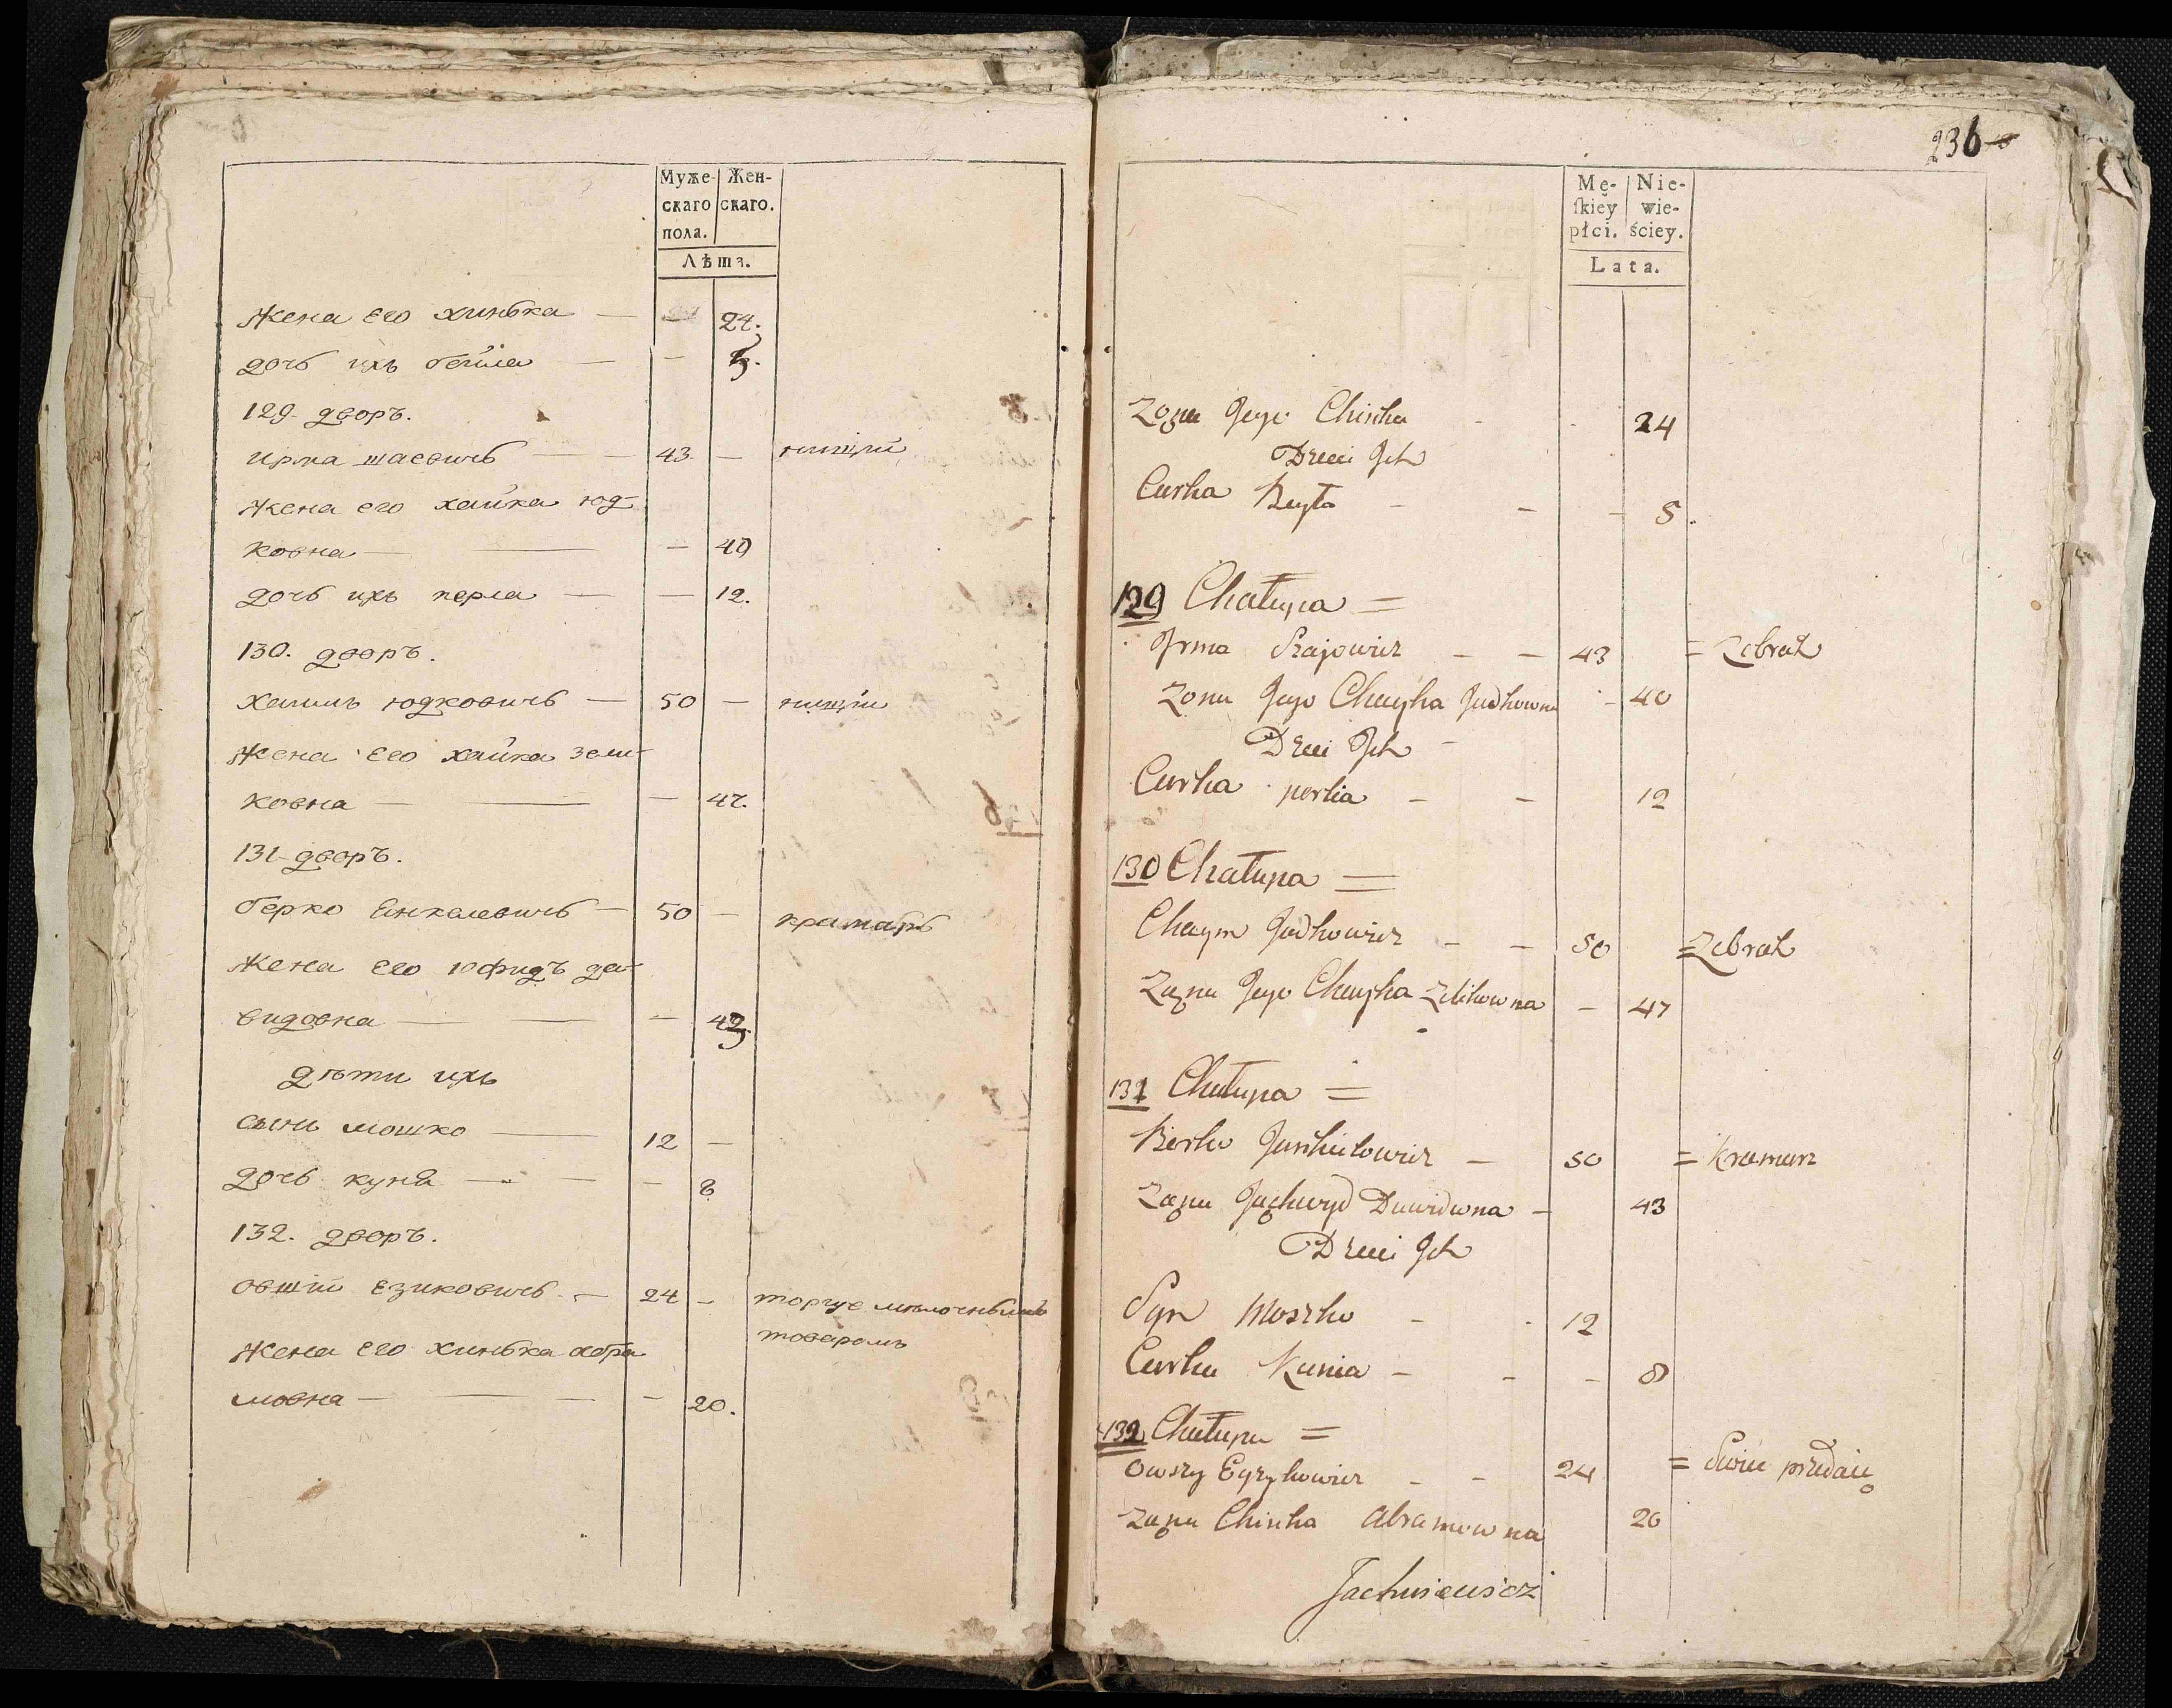 Муже-
скаго
пола.
Жен-
скаго.
Лѣтъ.
Жена его хинька — — 24.
дочь ихъ бейла — — 5.
129. дворъ.
ирма шаевичъ — — 43 — нищій
Жена его хайка юд-
ковна — — — 40
дочь ихъ перла — — 12.
130. дворъ.
хаимъ юдковичъ — 50 — нищій
Жена его хайка зели-
ковна — — — 47.
131 дворъ.
берко Янкелевичъ — 50 — крамарь
Жена его юфидъ да-
видовна — — — 43.
дѣти ихъ
сынъ мошко — 12 —
дочь куня — — — 8
132. дворъ.
овшій езиковичъ — 24 — торгуе мѣлочнымъ
товаромъ
Жена его хинька абра
мовна — — — 20.
236
Mę-
ſkiey
płci.
Nie-
wie-
ściey.
Lata.
Zona Jego Chinka - - 24
Dzieci Jch
Curka Beyła - - - 5.
129 Chałupa =
Jrma Szajowicz - - 43 = Zebrak
Zona Jego Chayka Judkowna - 40
Dzieci Jch -
Curka perlia - - 12
130 Chałupa =
Chaym Judkowicz - - 50 = Zebrak
Zona Jego Chayka Zelikowna - 47
131 Chałupa =
Berko Jankielowicz - 50 = Kramarz
Zona Juchwyd Dawidowna - 43
Dzieci Jch
Syn Moszko - - 12
Curka Kunia - - - 8
132 Chałupa =
Owszy Eyzykowicz - - 24 = Swiece przedaie
Zona Chinka Abramowna 20
Jachniewicz